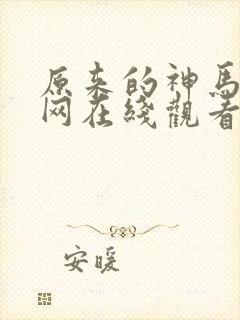 原来的神馬
网在綫觀看
安暖